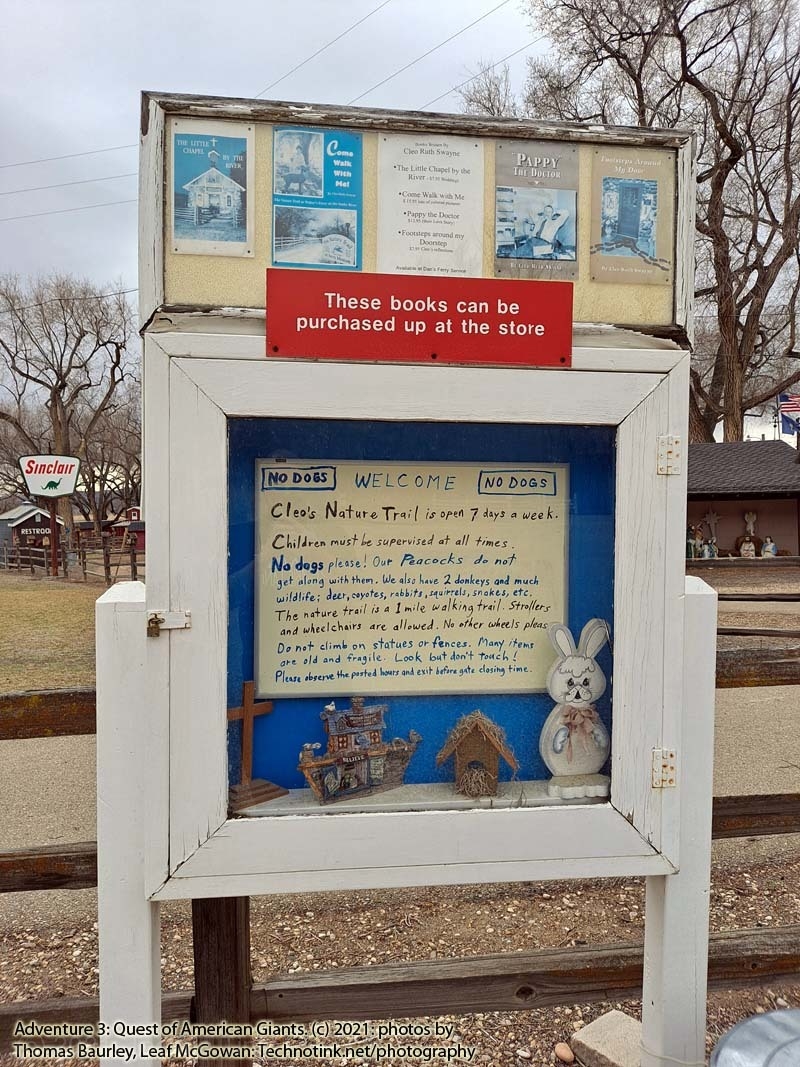 THE LITTLE CHAPEL BY THE RIVER
Come
Walk
With
Me!
Books Written By
Cleo Ruth Swayne
•The Little Chapel by the
River - $7.95
•Come Walk with Me
•Pappy the Doctor
•Footsteps around my
Doorstep
Available at Dan's Ferry Service
PAPPY
THE DOCTOR
Footsteps Around
My Door
By Cleo Ruth Swayne
These books can be
purchased up at the store
NO DOGS WELCOME NO DOGS
Cleo's Nature Trail is open 7 days a week.
Children must be supervised at all times.
No dogs please! Our Peacocks do not
get along with them. We also have 2 donkeys and much
wildlife; deer, coyotes, rabbits, squirrels, snakes, etc.
The nature trail is a 1 mile walking trail. Strollers
and wheelchairs are allowed. No other wheels pleas
Do not climb on statues or fences. Many items
are old and fragile. Look but don't touch!
Please observe the posted hours and exit before gate closing time.
BELIEVE
Sinclair
RESTROO
Adventure 3: Quest of American Giants. (c) 2021: photos by
Thomas Baurley, Leaf McGowan: Technotink.net/photography